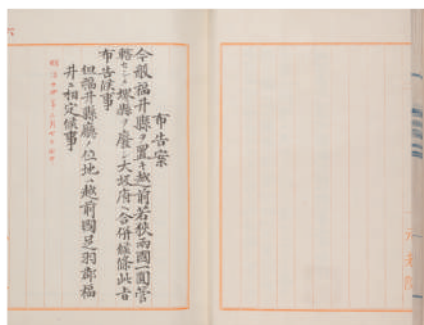 布告案
今般福井縣ヲ置キ越前若狭兩國一圓管
轄セシメ堺縣ヲ廢シ大坂府ヘ合併候條此旨
布告候事
但福井縣廳ノ位地ハ越前國足羽郡福
井ニ相定候事
明治十四年二月